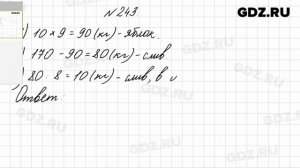 GDZ.RU
№ 243.
) 10 × 9 = 90 (кг) - яблок.
) 170 - 90 = 80 (кг) - слив
) 80 : 8 = 10 (кг) - слив, в
Ответ.
GDZ.RU